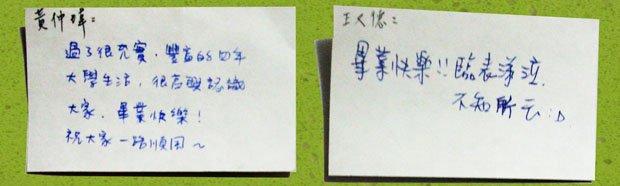 黃仲瑋:
過了很充實、豐富的四年
大學生活,很高興認識
大家、畢業快樂!
祝大家一路順風~
王乂德:
畢業快樂!!臨表涕泣,
不知所云:D